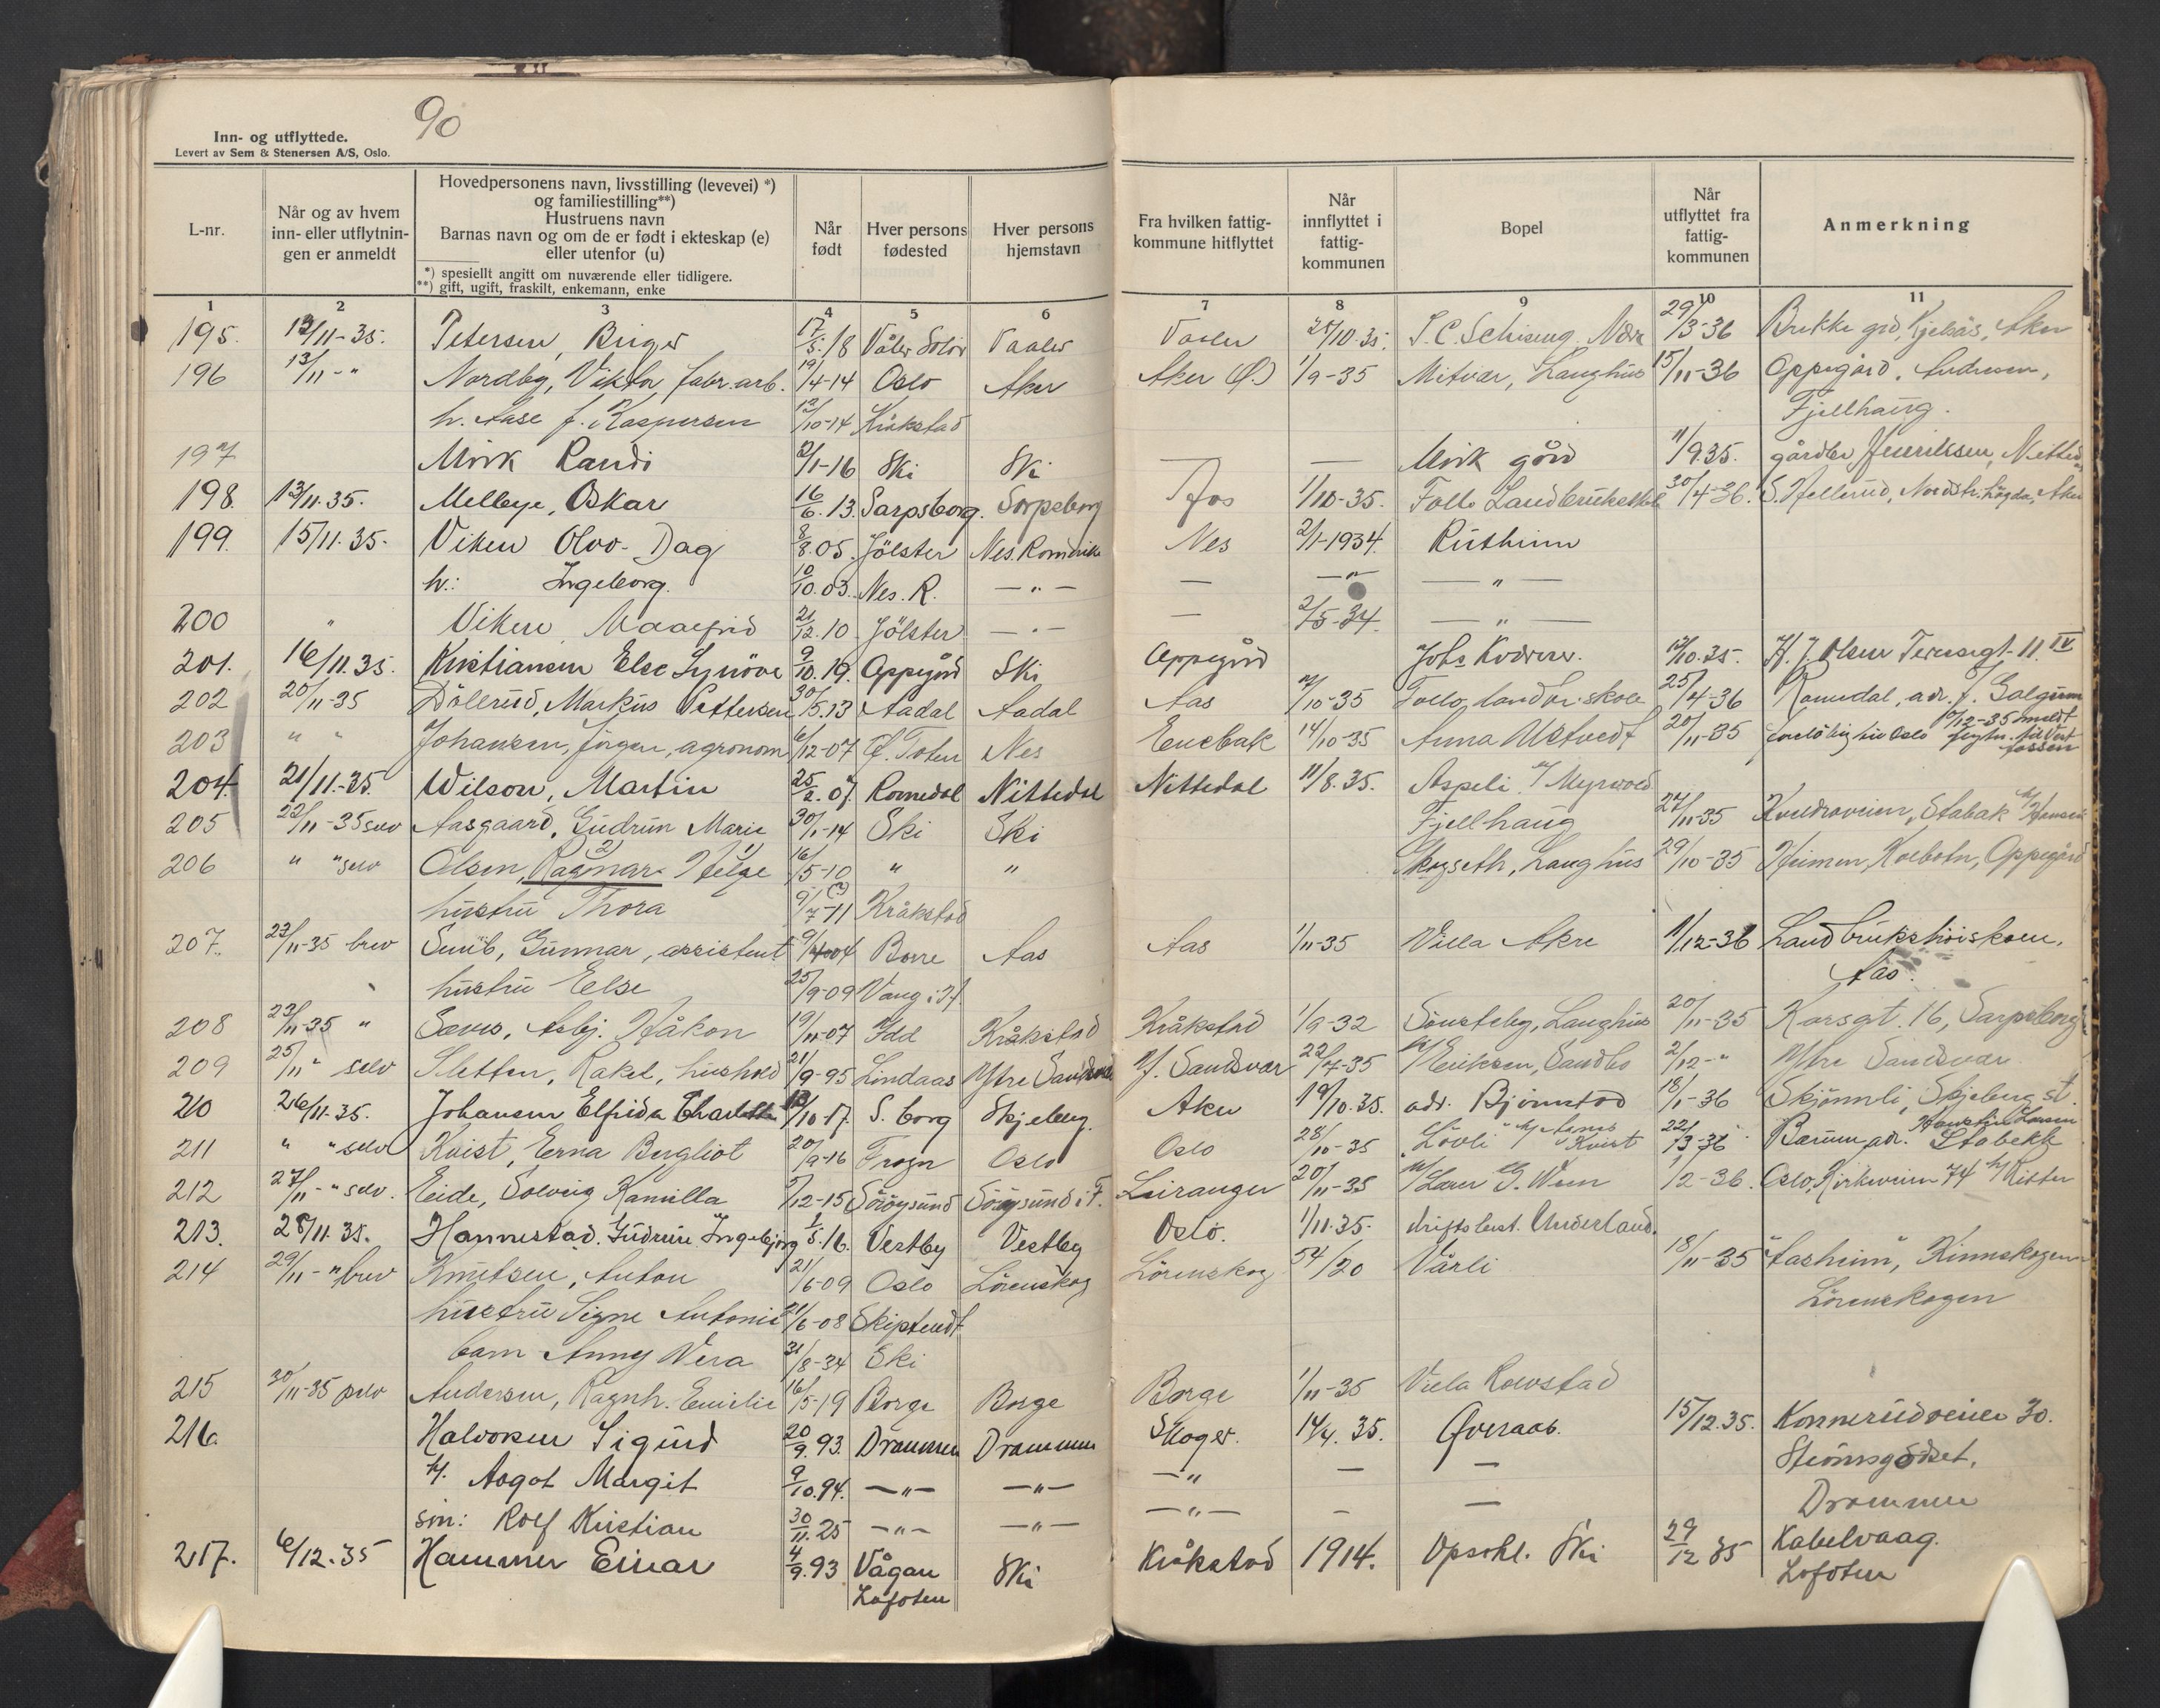 90
Inn- og utflyttede.
Levert av Sem & Stenersen A/S, Oslo.
L-nr.
Når og av hvem
inn- eller utflytnin-
gen er anmeldt
Hovedpersonens navn, livsstilling (levevei) *)
og familiestilling**)
Hustruens navn
Barnas navn og om de er født i ekteskap (e)
eller utenfor (u)
*) spesiellt angitt om nuværende eller tidligere.
**) gift, ugift, fraskilt, enkemann, enke
Når
født
Hver persons
fødested
Hver persons
hjemstavn
Fra hvilken fattig-
kommune hitflyttet
Når
innflyttet i
fattig-
kommunen
Bopel
Når
utflyttet fra
fattig-
kommunen
Anmerkning
1 2 3 4 5 6 7 8 9 10 11
195. 12/11-35. Petersen, Birger 17/5.18 Våler Solør Vaaler Vaaler 25/10.35. 29/3-36 Brekke grd, Kjelsås, Aker
196 13/11-" Nordby, Viktor fabr.arb. 19/4-14 Oslo Aker Aker (Ø.) 1/9-35 Mitvar, Langhus 15/11-36 Oppegård, Andresen,
h. Aase f. Kaspersen 12/10-14 Kråkstad Fjellhaug.
197 Mörk Randi 2/1-16 Ski Ski — — Mörk gård 11/9.35. gårdbr Henriksen, Nittedal
198. 13/11.35. Melleye, Oskar 16/6.13. Sarpsborg. Sarpsborg Aas 1/10-35. Follo Landbrukskole 30/4-36. S. Hellerud, Nordstr. Høgda, Aker
199. 15/11.35. Viken Olvo-Dag 8/8.05. Jölster Nes. Romerike Nes 2/1-1934. Rustheim
h.: Ingeborg. 10/10.03. Nes. R. —"— — —"— —"—
200 " Viken, Maalfrid 21/12.10. Jölster —"— — 2/5-34. —"—
201. 16/11.35. Kristiansen Else Synöve 9/10.19. Oppegård Ski Oppegård Johs Kværner. 12/10.35. H. J. Olsen Teresegt. 11. IV
202 20/11-35 Döllerud, Markus Pettersen 30/5.13 Aadal Aadal Aas 7/10-35 Follo landbr.skole 25/4-36 Romedal, adr. f. Galgum
203 " " Johansen, Jörgen, agronom 6/12-07 Ø. Toten Nes Enebak 14/10-35 Anna Ustvedt 20/11-35 foreløbig til Oslo 10/12-35 meldt flytn. til Vestfossen
204. 21/11.-35. Wilson, Martin 25/2.07. Romedal Nittedal Nittedal 11/8.35. Aspeli v/ Myrvold
205 22/11-35 selv Aasgaard, Gudrun Marie 30/1-14 Ski Ski Fjellhaug 27/11-35 Kveldroveien, Stabæk h/ Hansen
206 " " selv Olsen, Ragnar 2) Helge 1) 16/5-10 " " Skogseth, Langhus 29/10-35 Heimen, Kolbotn, Oppegård
hustru Thora 9/7-11 (?) Kråkstad
207. 23/11-35 brev Smib, Gunnar, assistent Borre Aas Aas 1/11-35 Villa Åkre 1/12-36 Landbrukshöiskolen,
hustru Else 25/9-09 Vang i H. Aas.
208 23/11-35 " Sævis, Asbj. Håkon 19/11-07 Idd Kråkstad Kråkstad 1/9-32 Sönsteby, Langhus 20/11-35 Korsgt. 16, Sarpsborg
209 25/11 " selv Sletten, Rakel, hushold 21/9-95 Lindaas Ytre Sandsvær Y. Sandsvær 22/7-35 h/ Eriksen, Sandbo 2/12-" Ytre Sandsvær
210 26/11.35. Johansen Elfrida Charlotte 13/10-17. S.borg Skjeberg. Aker 19/10.35. adr. Björnstad 18/1-36 Skjönnli, Skjeberg st.
211 " " selv Kvist, Erna Bergliot 20/9-16 Frogn Oslo Oslo 28/10-35 "Lövli" h/ Agnes Kvist 22/3-36 Bærum, adr. Stabekk
212 27/11-" selv. Eide, Solveig Kamilla 5/12-15 Söröysund Söröysund i F. Leiranger 20/11-35 h/ Lærer G. Wien 1/2-36. Oslo, Kirkeveien 74 h/ Ritter
213. 28/11.35. Hannestad. Gudrun Ingebjörg 1/5.16. Vestby Vestby Oslo. 1/11.35. driftsbest. Underland.
214 29/11-" brev Knutsen, Anton 21/6-09 Oslo Lörenskog Lörenskog 54/20 Vårli 18/11-35 "Aasheim", Kinnskogen
hustru Signe Antonie 21/6-08 Skiptvedt Lörenskogen
barn Anny Vera 31/8-34 Ski
215 30/11-35 selv Andersen, Ragnh. Emilie 16/5-19 Borge Borge Borge 1/11-35 Villa Rolvstad
216. Halvorsen Sigurd 20/9.93. Drammen Drammen Skoger. 14/4. 35. Qveraas. 15/12.35. Konnerudveien 30.
H. Aagot Margit 9/10.94. —"— —"— —"— — — Strömsgödset,
sön: Rolf Kristian 30/11.25 —"— —"— —"— — — Drammen
217. 6/12.35 Hammer Einar 4/9.93 Vågan Ski Kråkstad 1914. Opsahl. Ski 29/12 35 Kabelvaag.
Lofoten Lofoten